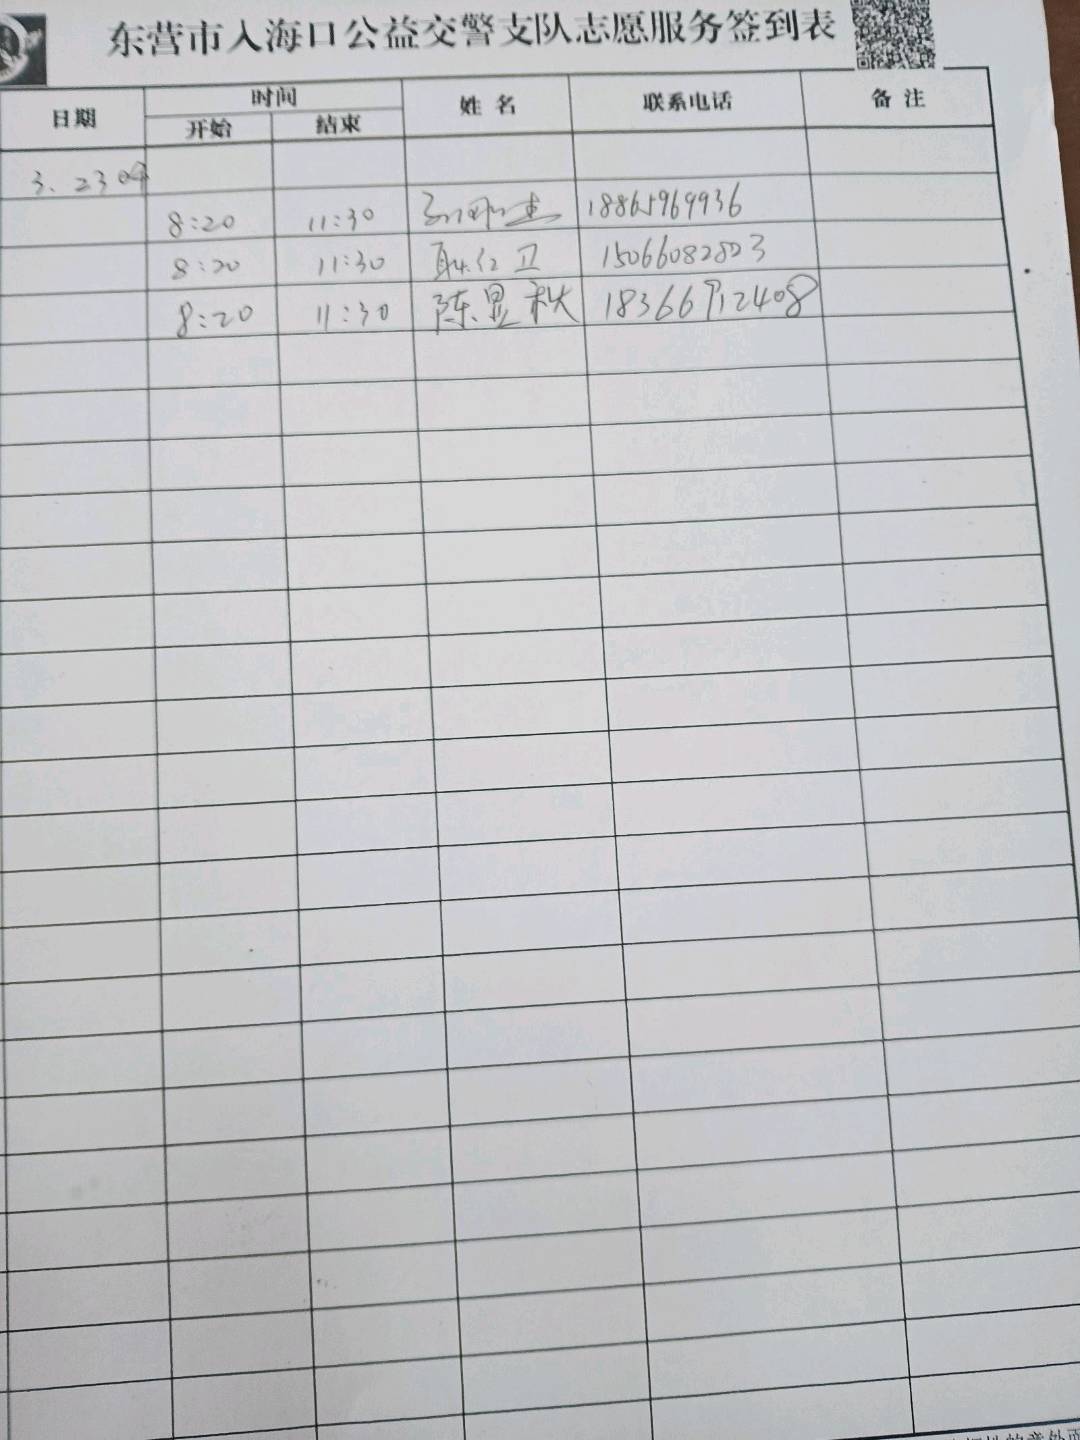 东营市入海口公益交警支队志愿服务签到表
日期 时间 姓名 联系电话 备注
开始 结束
3.23
8:20 11:30 18865969936
8:20 11:30 耿红卫 15066082823
8:20 11:30 陈显秋 18366912408